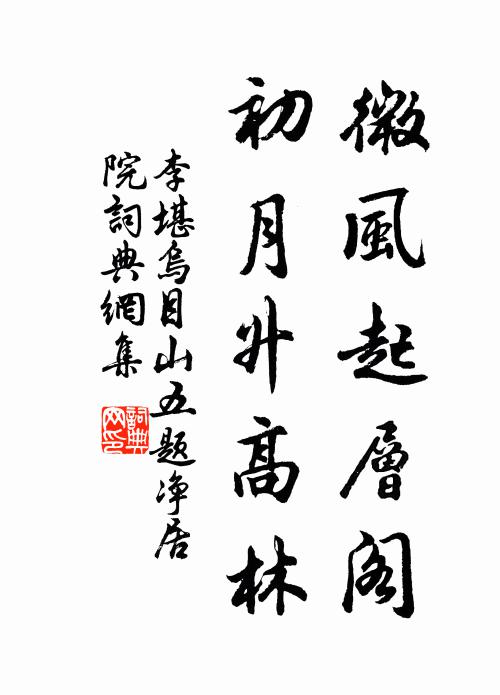 微風起層閣
初月升高林
李堪烏目山五題净居
院詞典網集
詞典
网印